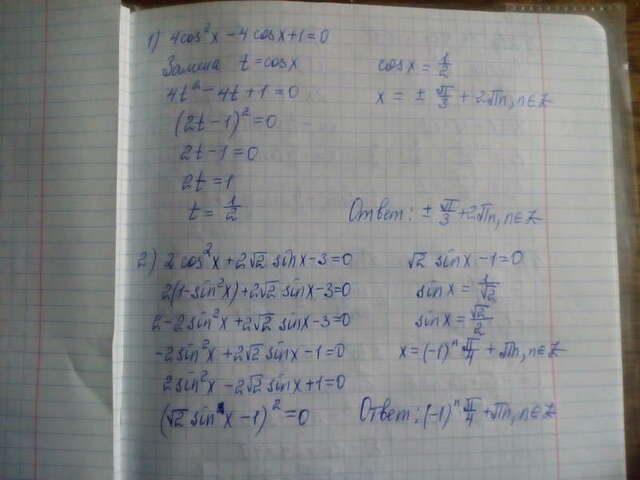 1) 4cos²x - 4cosx + 1 = 0
Замена t = cosx
4t² - 4t + 1 = 0
(2t - 1)² = 0
2t - 1 = 0
2t = 1
t = 1/2
cosx = 1/2
x = ± π/3 + 2πn, n∈Z
Ответ: ± π/3 + 2πn, n∈Z
2) 2cos²x + 2√2 sinx - 3 = 0
2(1 - sin²x) + 2√2 sinx - 3 = 0
2 - 2sin²x + 2√2 sinx - 3 = 0
-2sin²x + 2√2 sinx - 1 = 0
2sin²x - 2√2 sinx + 1 = 0
(√2 sin x - 1)² = 0
√2 sinx - 1 = 0
sinx = 1/√2
sinx = √2/2
x = (-1)ⁿ π/4 + πn, n∈Z
Ответ: (-1)ⁿ π/4 + πn, n∈Z